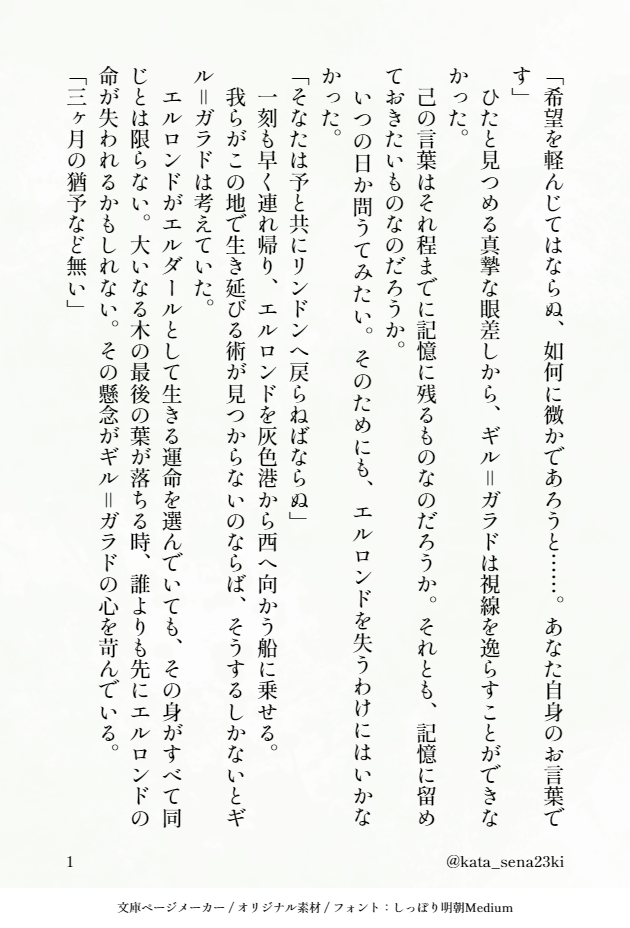 「希望を軽んじてはならぬ、如何に微かであろうと……。あなた自身のお言葉で
す」
　ひたと見つめる真摯な眼差しから、ギル＝ガラドは視線を逸らすことができな
かった。
　己の言葉はそれ程までに記憶に残るものなのだろうか。それとも、記憶に留め
ておきたいものなのだろうか。
　いつの日か問うてみたい。そのためにも、エルロンドを失うわけにはいかな
かった。
「そなたは予と共にリンドンへ戻らねばならぬ」
　一刻も早く連れ帰り、エルロンドを灰色港から西へ向かう船に乗せる。
　我らがこの地で生き延びる術が見つからないのならば、そうするしかないとギ
ル＝ガラドは考えていた。
　エルロンドがエルダールとして生きる運命を選んでいても、その身がすべて同
じとは限らない。大いなる木の最後の葉が落ちる時、誰よりも先にエルロンドの
命が失われるかもしれない。その懸念がギル＝ガラドの心を苛んでいる。
「三ヶ月の猶予など無い」
1
@kata_sena23ki
文庫ページメーカー / オリジナル素材 / フォント：しっぽり明朝Medium